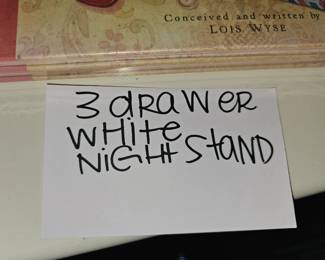 Conceived and written by
LOIS WYSE
3 drawer
white
nightstand